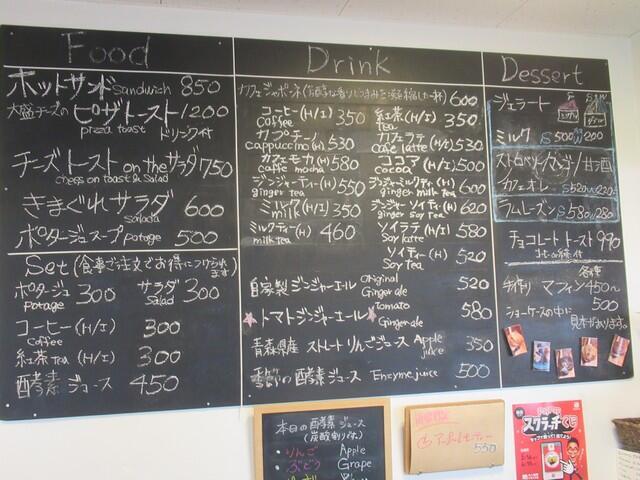 Food
ホットサンド sandwich 850
大盛チーズの ピザトースト 1200
pizza toast ドリンク付
チーズトースト on the サラダ 750
chess on toast & Salad
きまぐれサラダ 600
salada
ポタージュスープ potage 500
Set (食事ご注文でお得につけられます)
ポタージュ 300 サラダ 300
Potage Salad
コーヒー (H/I) 300
Coffee
紅茶 Tea (H/I) 300
酵素ジュース 450
Drink
カフェジャポーネ 600
コーヒー (H/I) 350 紅茶 (H/I) 350
coffee Tea
カプチーノ (H) 530 カフェラテ (H/I) 530
cappuccino cafe latte
カフェモカ (H) 580 ココア (H/I) 500
caffe mocha cocoa
ジンジャーティー (H) 550 ジンジャーミルクティ (H) 600
ginger tea ginger milk tea
ミルク (H/I) 350 ジンジャーソイティ (H) 620
milk ginger soy tea
ミルクティー (H) 460 ソイラテ (H/I) 580
milk tea Soy latte
ソイティー (H) 520
Soy tea
自家製 ジンジャーエール original Ginger ale 520
トマトジンジャーエール tomato Ginger ale 580
青森県産 ストレート りんごジュース Apple juice 350
酵素ジュース Enzyme juice 500
Dessert
ジェラート
ミルク S 500 W 200
甘酒
カフェオレ S 520
ラムレーズン S 580 280
チョコレートトースト 990
各種
手作り マフィン 450~
500
ショーケースの中に
見本があります。
本日の酵素ジュース
(炭酸割り付)
りんご Apple
ぶどう Grape
550
スクラッチくじ